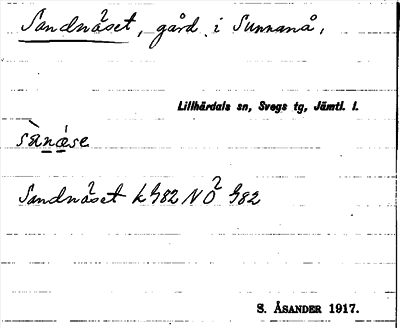 Sandnåset, gård i Sunnanå,
Lillhärdals sn, Svegs tg, Jämtl. l.
sànǽse
Sandnåset k G82 NO² G82
S. ÅSANDER 1917.